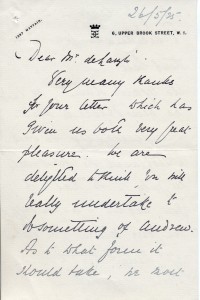 26/5/35.
6, UPPER BROOK STREET, W. 1.
Dear Mr de Laszlo
Very many thanks
for your letter which has
given us both very great
pleasure. We are
delighted to think you will
really undertake to
do something of Andrew.
As to what form it
should take, we most